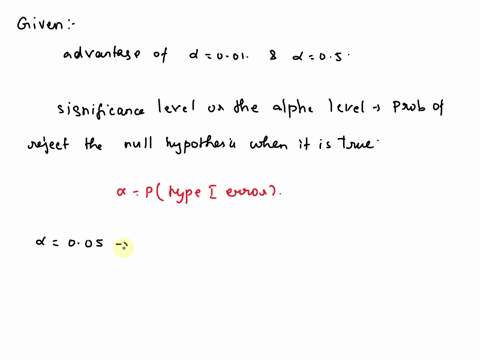 Given:-
advantage of α = 0.01. & α = 0.5.
significance level or the alphe level → Prob of
reject the null hypothesis when it is true.
α = P( type I error).
α = 0.05 →